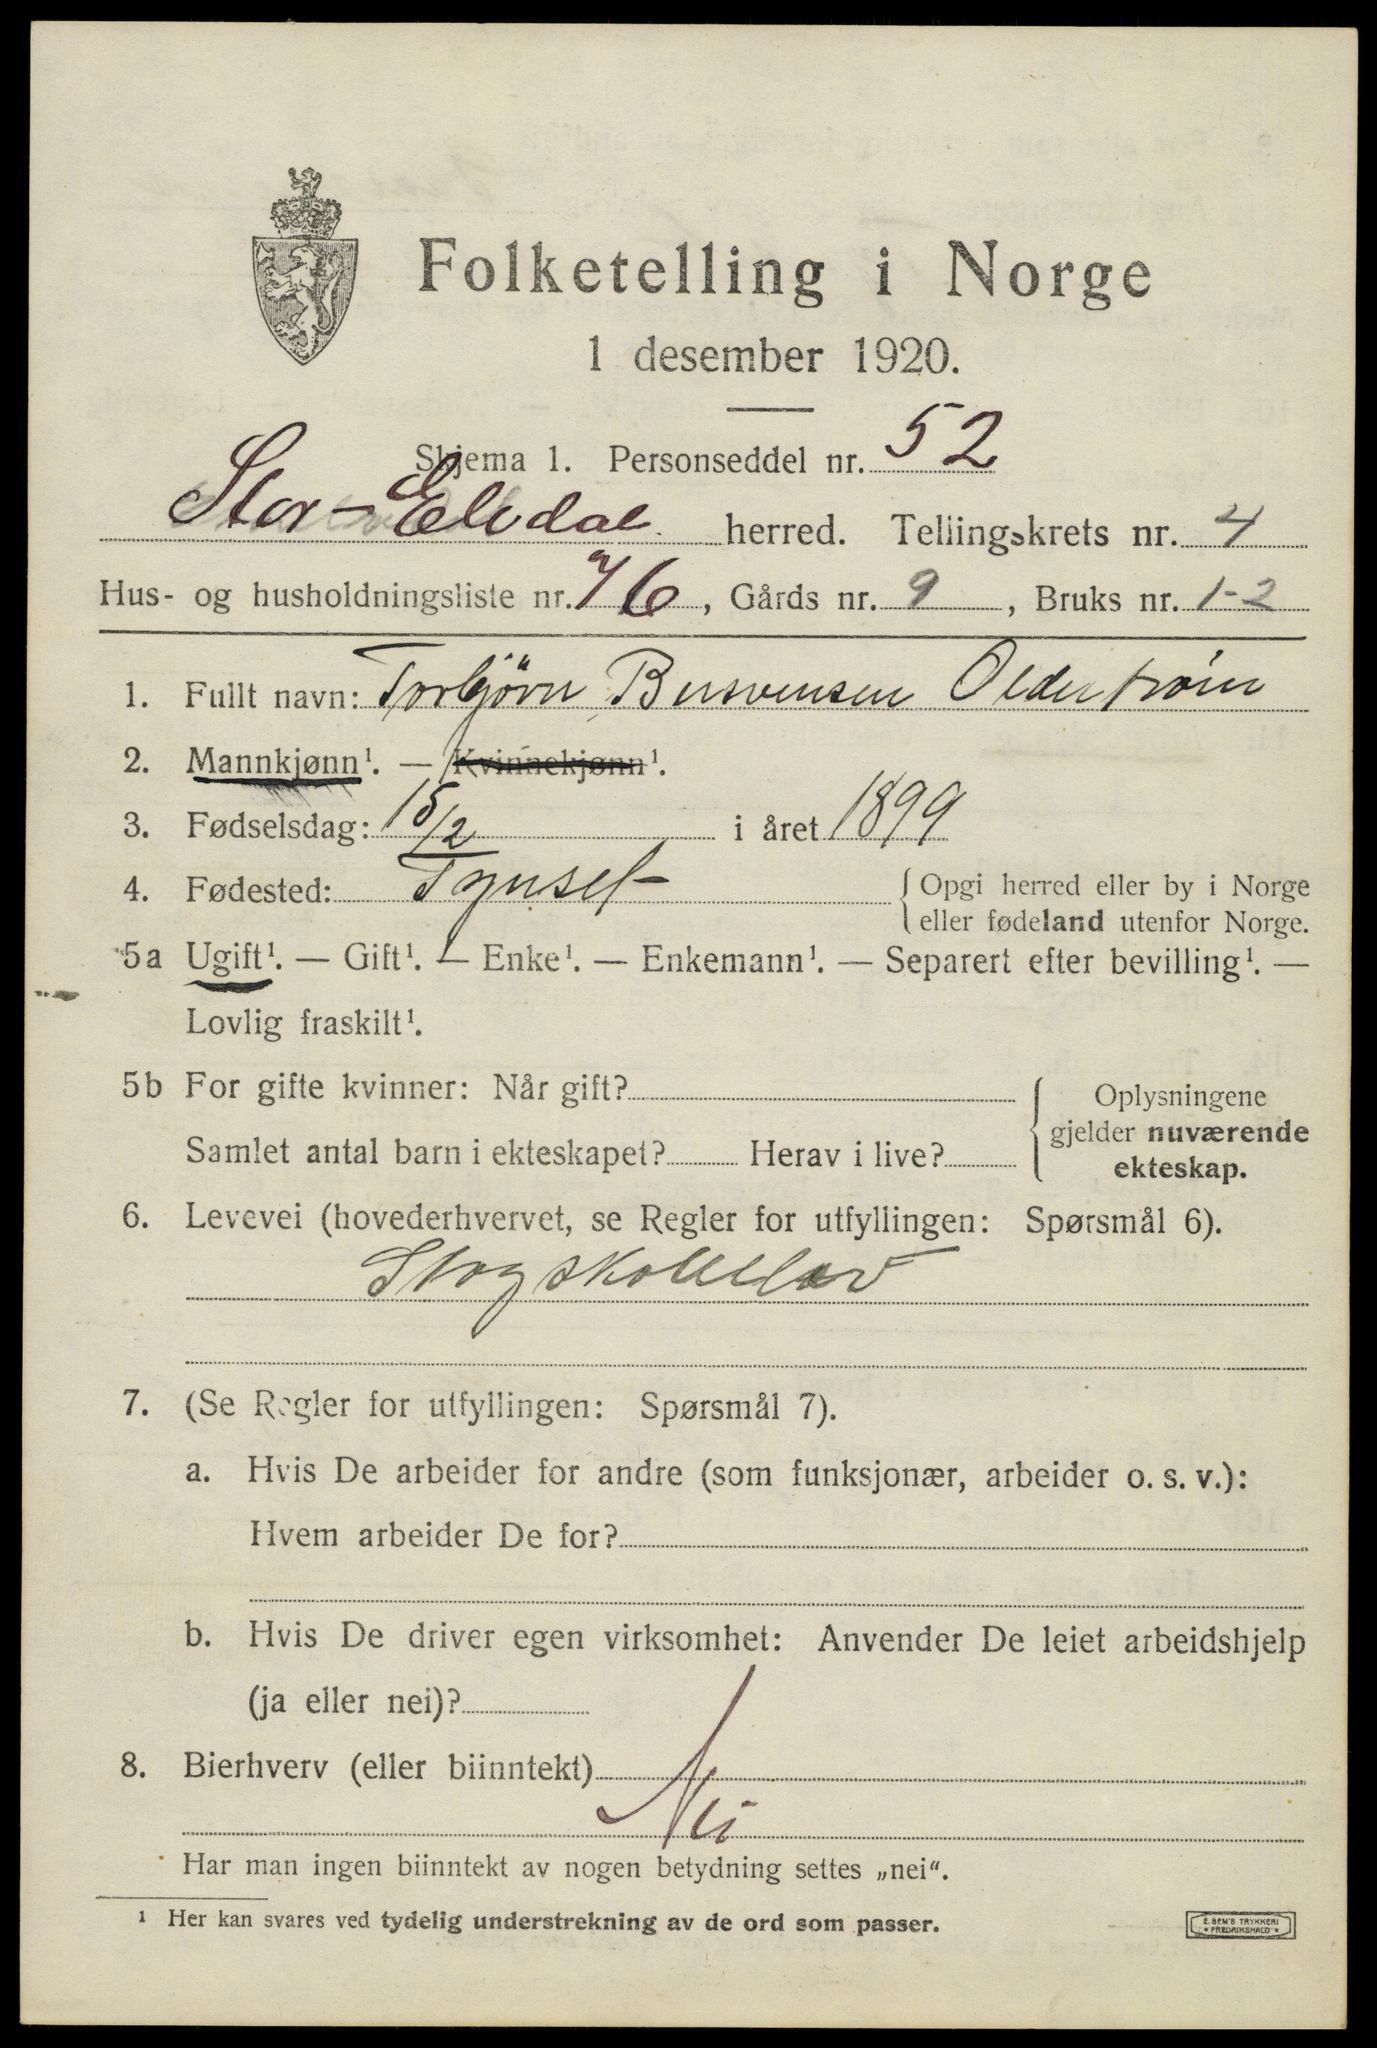 Folketelling i Norge
1 desember 1920.
Skjema 1. Personseddel nr. 52
Stor-Elvdal herred. Tellingskrets nr. 4
Hus- og husholdningsliste nr. 76, Gårds nr. 9, Bruks nr. 1-2
1. Fullt navn: Torbjörn Bersvensen Olderstrøm
2. Mannkjønn¹. — Kvinnekjønn¹.
3. Fødselsdag: 15/2 i året 1899
4. Fødested: Tynset
{Opgi herred eller by i Norge
eller fødeland utenfor Norge.
5a Ugift¹. — Gift¹. — Enke¹. — Enkemann¹. — Separert efter bevilling¹. —
Lovlig fraskilt¹.
5b For gifte kvinner: Når gift?
Samlet antal barn i ekteskapet? Herav i live?
{Oplysningene
gjelder nuværende
ekteskap.
6. Levevei (hovederhvervet, se Regler for utfyllingen: Spørsmål 6).
Skogskoleelev
7. (Se Regler for utfyllingen: Spørsmål 7).
a. Hvis De arbeider for andre (som funksjonær, arbeider o. s. v.):
Hvem arbeider De for?
b. Hvis De driver egen virksomhet: Anvender De leiet arbeidshjelp
(ja eller nei)?
8. Bierhverv (eller biinntekt)
Nei
Har man ingen biinntekt av nogen betydning settes „nei“.
¹ Her kan svares ved tydelig understrekning av de ord som passer.
E. SEM'S TRYKKERI
* FREDRIKSHALD *